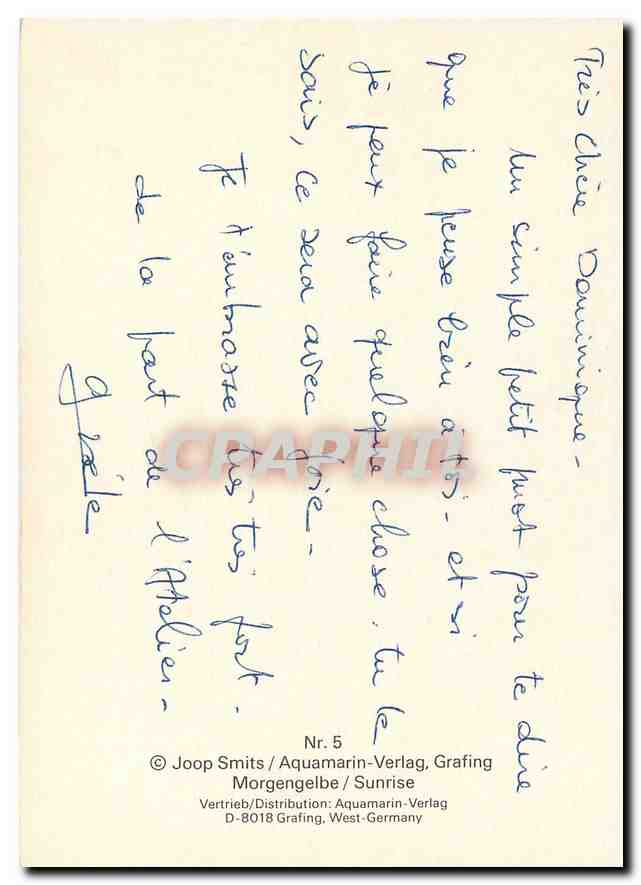 Très chère Dominique -
Un simple petit mot pour te dire
que je pense bien à toi - et si
je peux faire quelque chose, tu le
sais, ce sera avec joie -
Je t'embrasse très très fort -
de la part de l'Atelier -
CPAPHIL
Nr. 5
© Joop Smits / Aquamarin-Verlag, Grafing
Morgengelbe / Sunrise
Vertrieb/Distribution: Aquamarin-Verlag
D-8018 Grafing, West-Germany